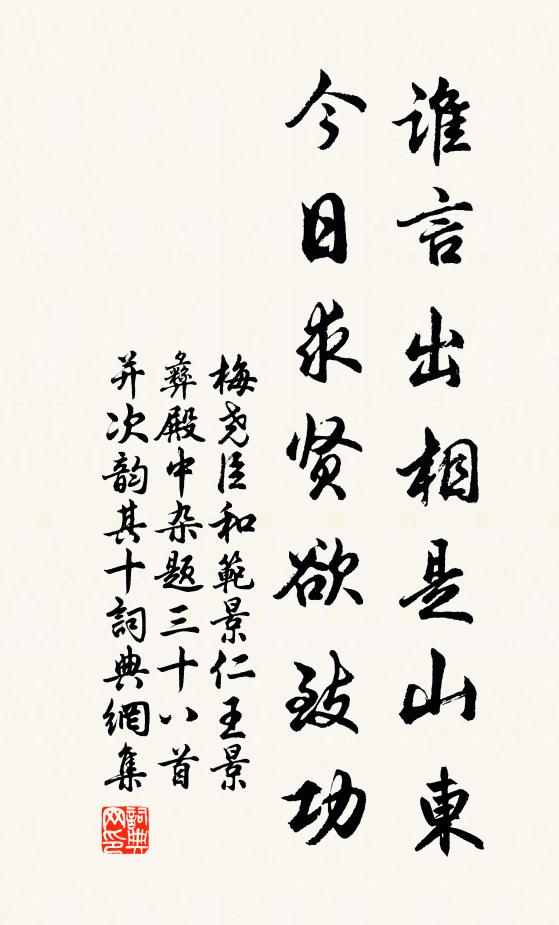 谁言出相是山東
今日求贤欲致功
梅尧臣和範景仁王景
彝殿中杂题三十八首
并次韵其十詞典網集
詞典网印